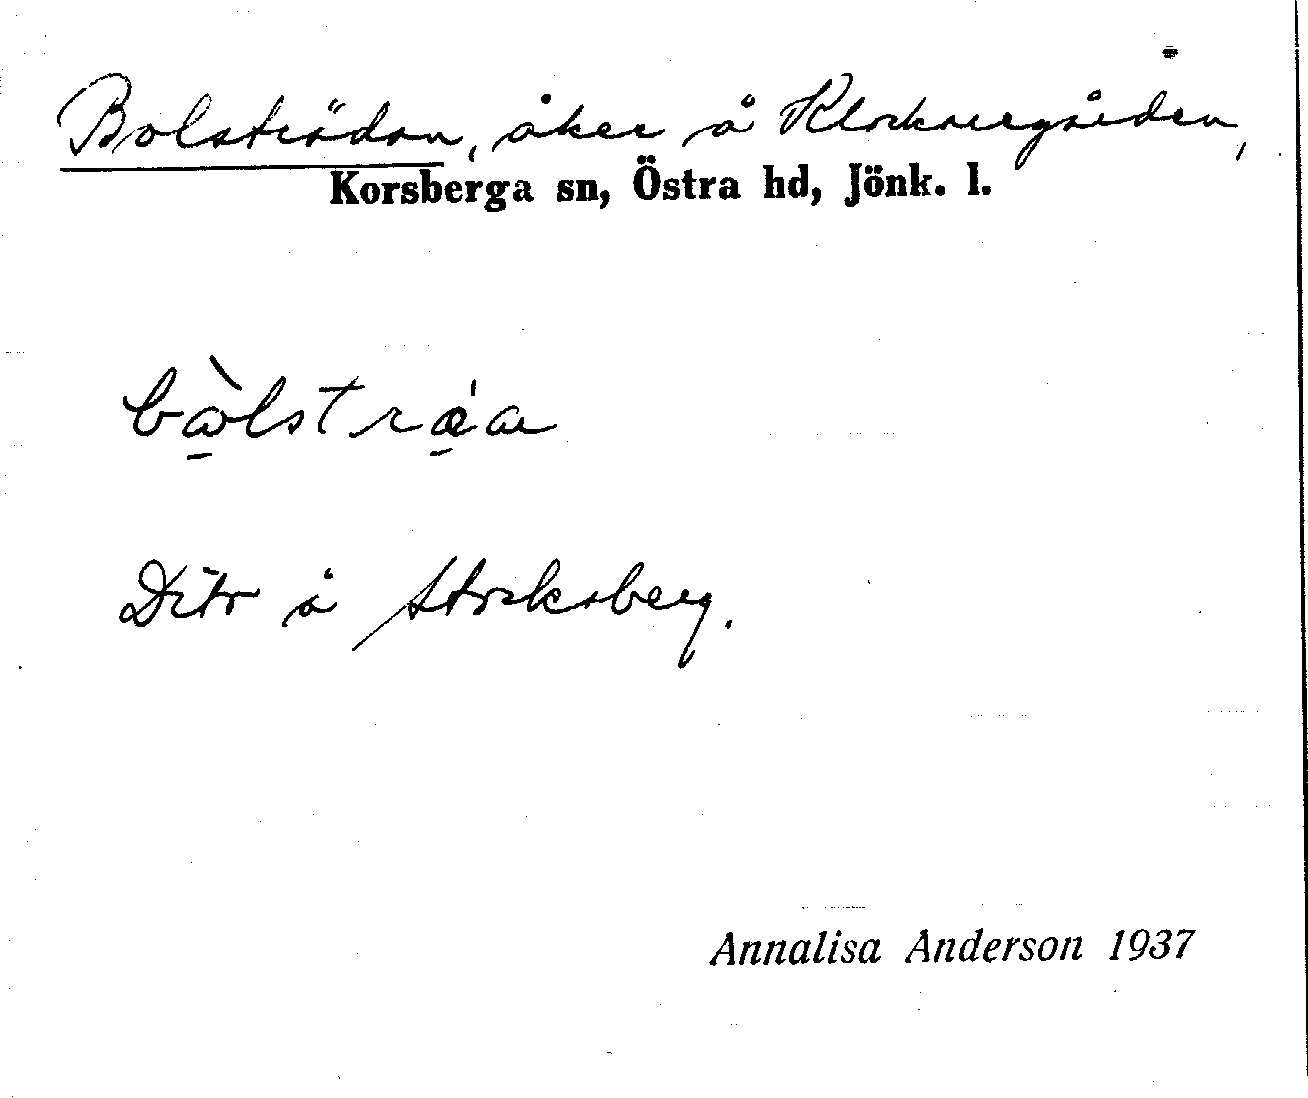 Bolsträdan, åker å Klockaregården,
Korsberga sn, Östra hd, Jönk. l.
Dito å Stocksberg.
Annalisa Anderson 1937